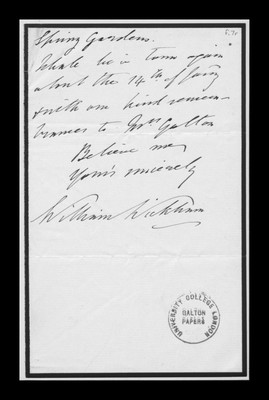 Spring Gardens.
Shall be in town again
about the 14th of
with our kind remem-
brances to Mrs Galton
Believe me
Yours sincerely
William Wickham
UNIVERSITY COLLEGE LONDON
GALTON
PAPERS